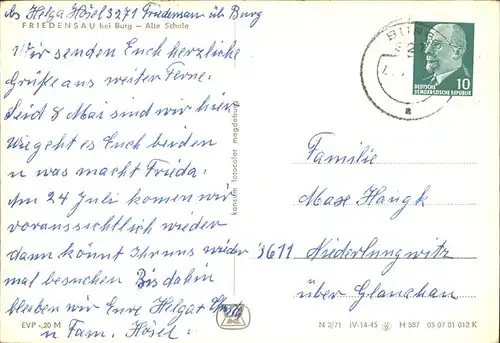 Abs Helga Hösel 3271 Friedensau üb Burg
FRIEDENSAU bei Burg — Alte Schule
Wir senden Euch herzliche
Grüße aus weiter Ferne.
Seid 8 Mai sind wir hier
Wie geht es Euch beiden
u was macht Frieda.
Am 24 Juli komen wir
voraussichtlich wieder
dann könnt Ihr uns wieder
mal besuchen Bis dahin
bleiben wir Eure Helga
u Fam. Hösel.
EVP -,20 M
konsum fotocolor magdeburg
BURG
DEUTSCHE
DEMOKRATISCHE REPUBLIK
10
a
Familie
Max Hangk
3611 Niederlungwitz
über Glauchau
N 2/71 IV-14-45 H 587 05 07 01 012 K